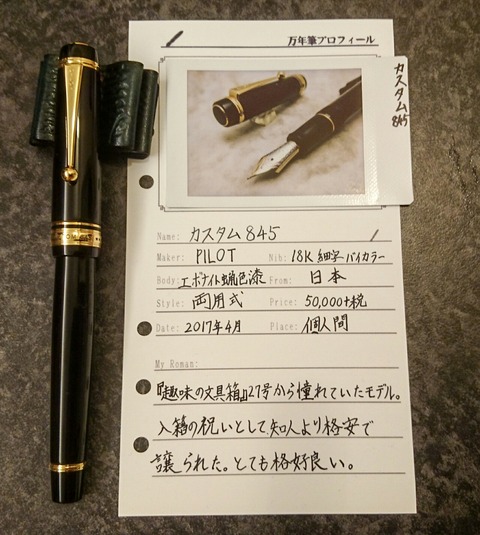 万年筆プロフィール
カスタム845
Name: カスタム845
Maker: PILOT Nib: 18K 細字 バイカラー
Body: エボナイト蝋色漆 From: 日本
Style: 両用式 Price: 50,000+税
Date: 2017年4月 Place: 個人間
My Roman:
『趣味の文具箱』27号から憧れていたモデル。
入籍の祝いとして知人より格安で
譲られた。とても格好良い。